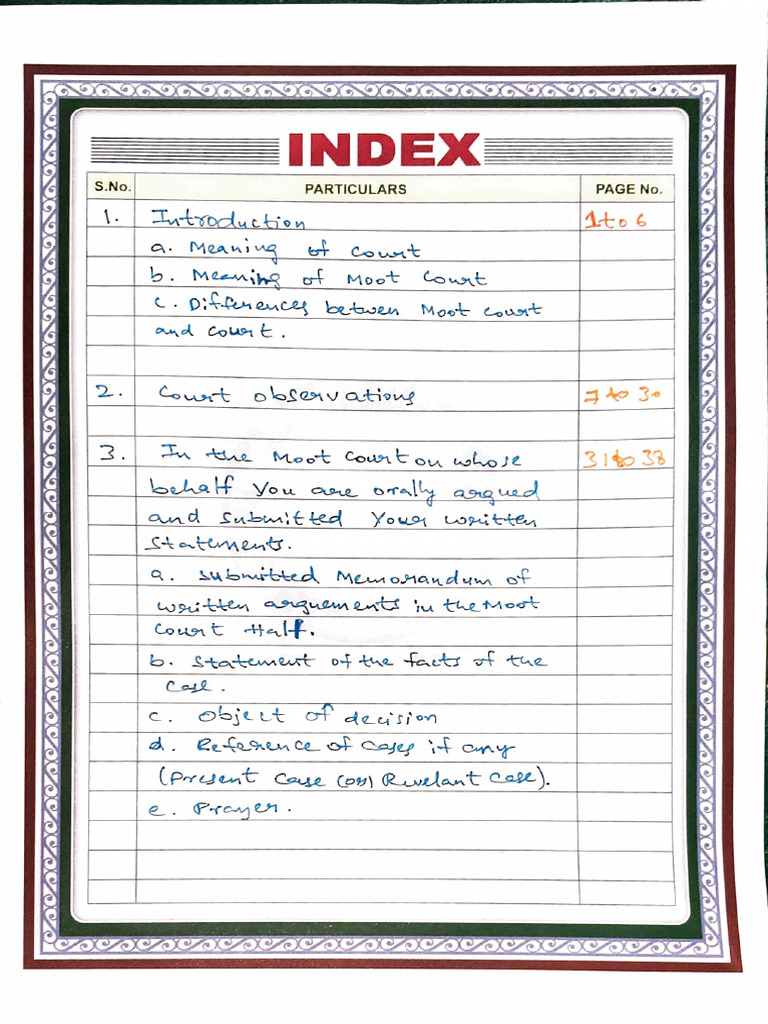 INDEX
S.No. PARTICULARS PAGE No.
1. Introduction 1 to 6
a. Meaning of Court
b. Meaning of Moot Court
c. Differences between Moot Court
and Court.
2. Court observations 7 to 30
3. In the Moot Court on whose 31 to 38
behalf You are orally argued
and submitted Your written
statements.
a. submitted Memorandum of
written arguements in the Moot
Court Hall.
b. Statement of the facts of the
Case.
c. Object of decision
d. Reference of Cases if any
(Present Case (or) Rivelant Case).
e. Prayer.